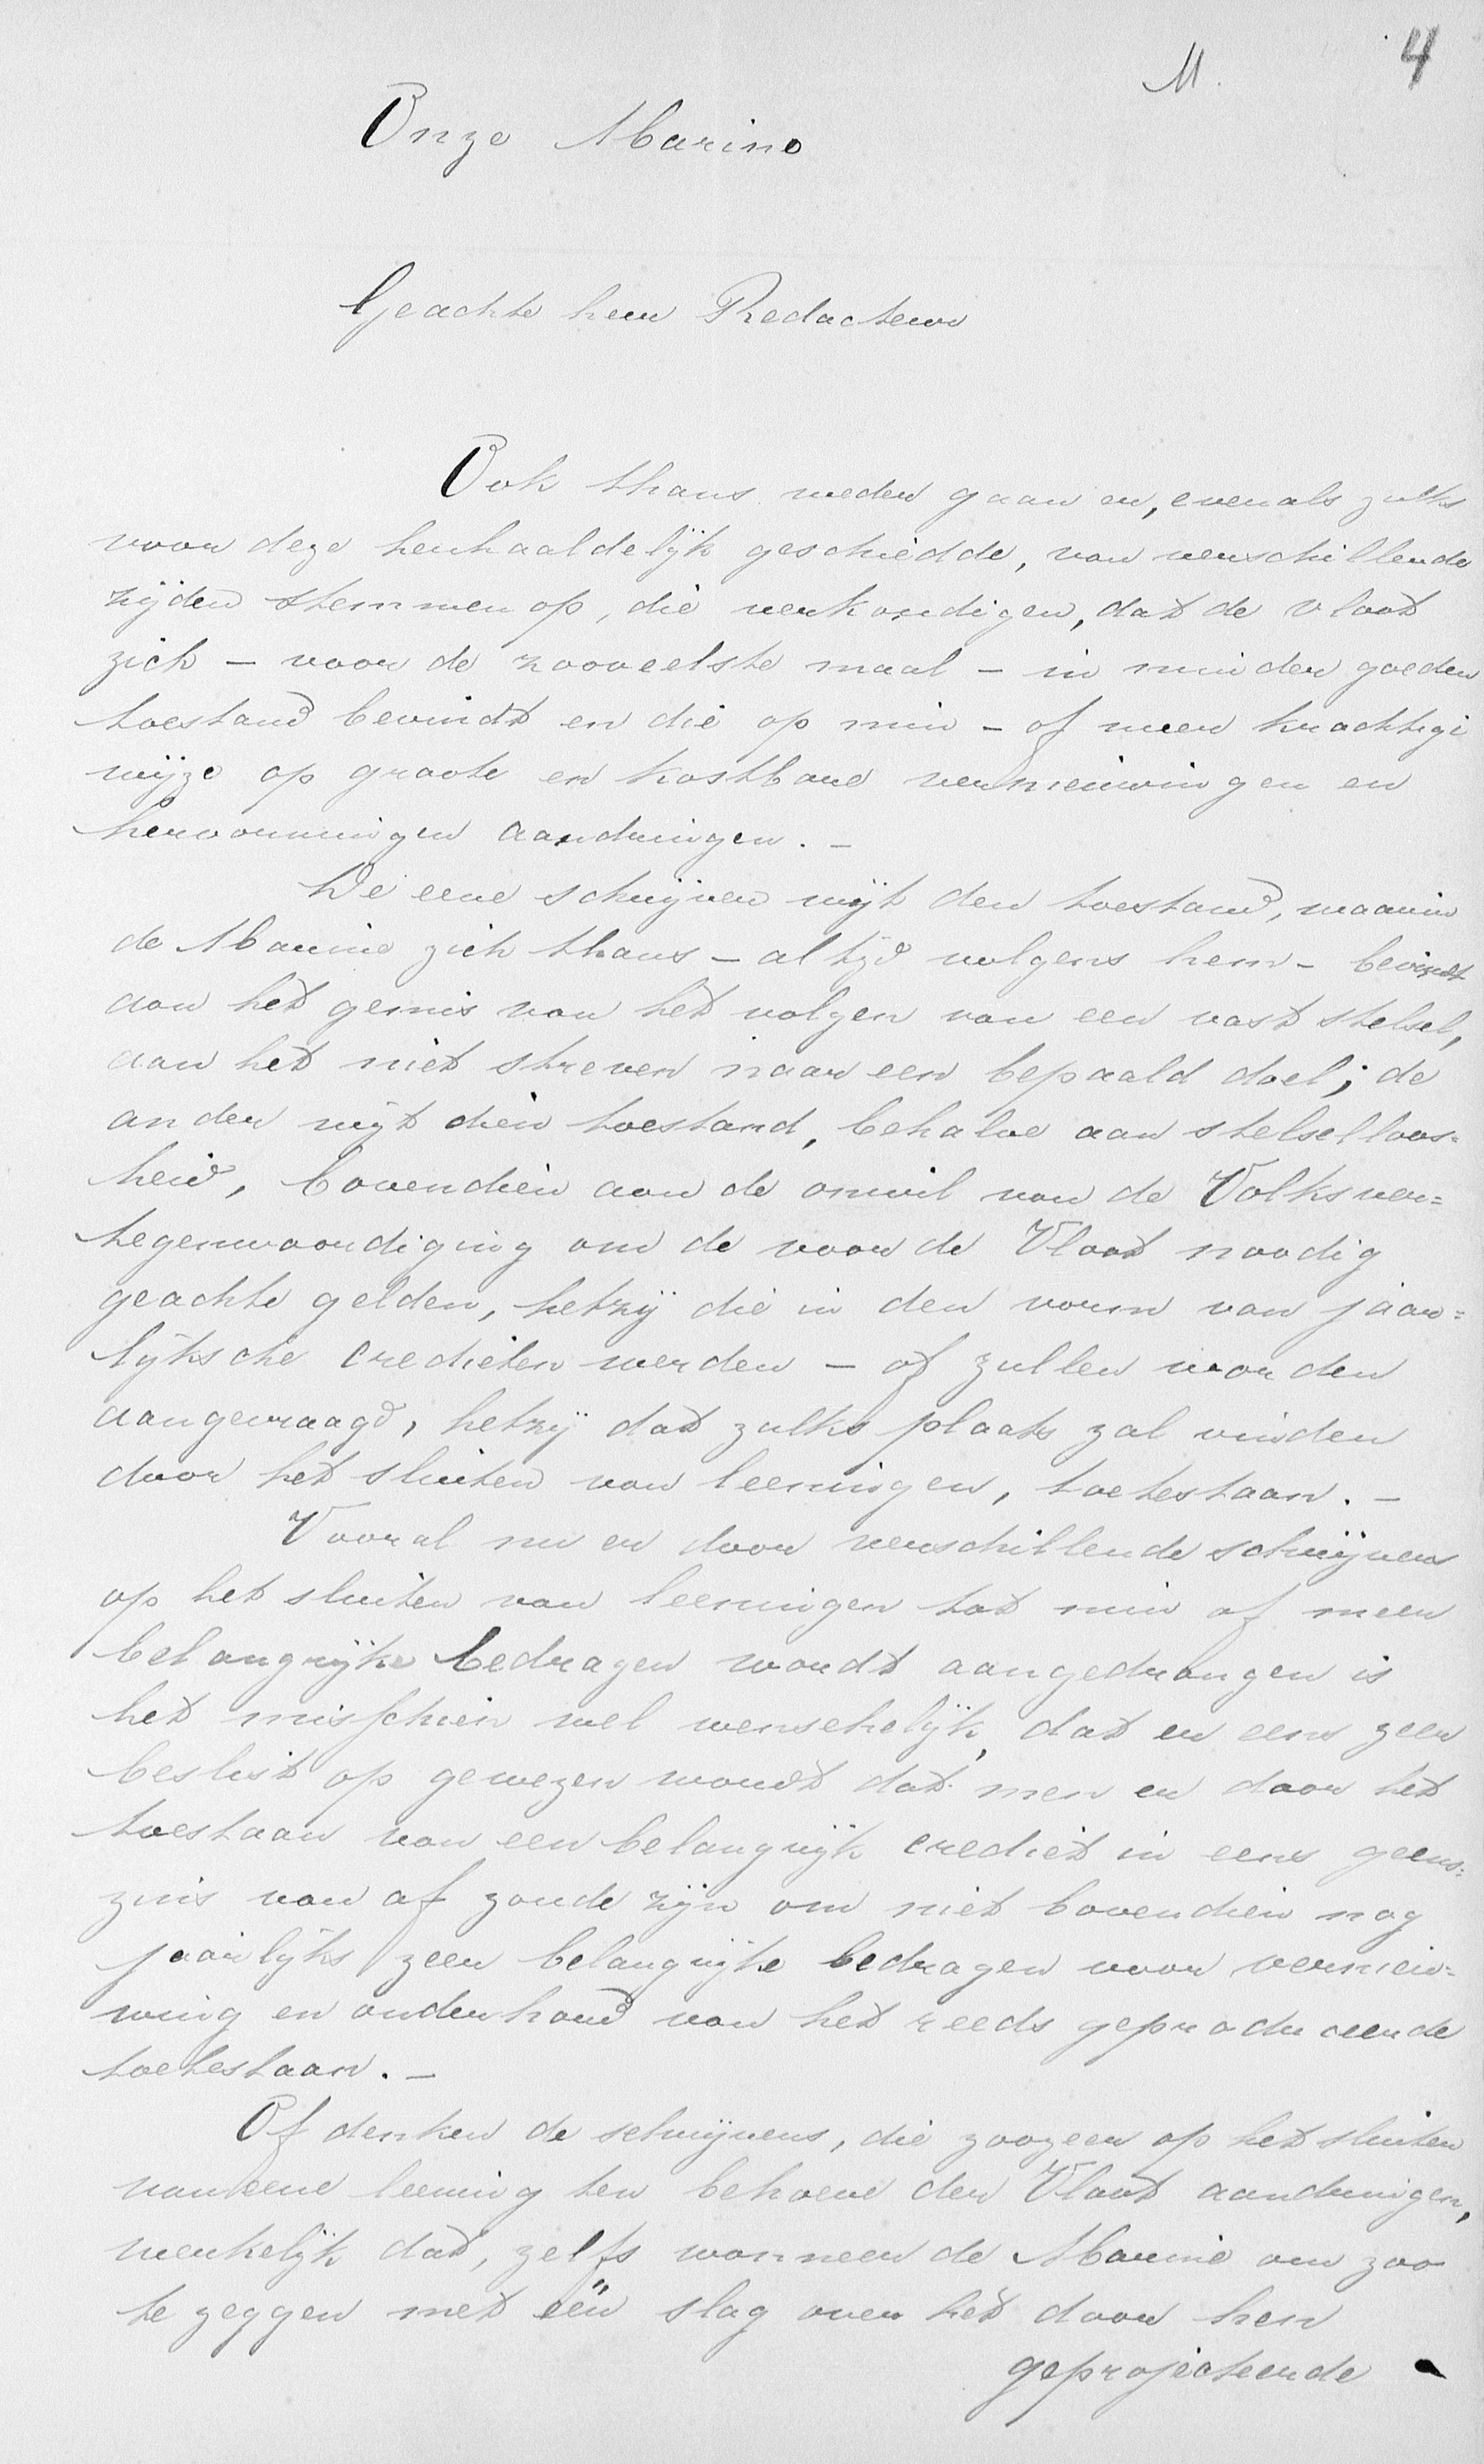 M. 4
Onze Marine
Geachte heer Redacteur
Ook thans weder gaan er, evenals zulks
voor deze herhaaldelijk geschiedde, van verschillende
zijden stemmen op, die verkondigen, dat de vloot
zich - voor de zooveelste maal - in minder goeden
toestand bevindt en die op min - of meer krachtige
wijze op groote en kostbare vernieuwingen en
hervormingen aandringen. -
De eene schrijver wijt den toestand, waarin
de Marine zich thans - altijd volgens hem - bevindt
aan het gemis van het volgen van een vast stelsel,
aan het niet streven naar een bepaald doel; de
ander wijt dien toestand, behalve aan stelselloos=
heid, bovendien aan de onwil van de Volksver=
tegenwoordiging om de voor de Vloot noodig
geachte gelden, hetzij die in den vorm van jaar=
lijksche credieten werden - of zullen worden
aangevraagd, hetzij dat zulks plaats zal vinden
door het sluiten van leeningen, toetestaan. -
Vooral nu er door verschillende schrijvers
op het sluiten van leeningen tot min of meer
belangrijke bedragen wordt aangedrongen is
het misschien wel wenschelijk, dat er eens zeer
beslist op gewezen wordt dat men er door het
toestaan van een belangrijk crediet in eens geens=
zins van af zoude zijn om niet bovendien nog
jaarlijks zeer belangrijke bedragen voor vernieu=
wing en onderhoud van het reeds geproduceerde
toetestaan. -
Of denken de schrijvers, die zoozeer op het sluiten
van eene leening ten behoeve der Vloot aandringen,
werkelijk dat, zelfs wanneer de Marine om zoo
te zeggen met één slag over het door hen
geprojecteerde